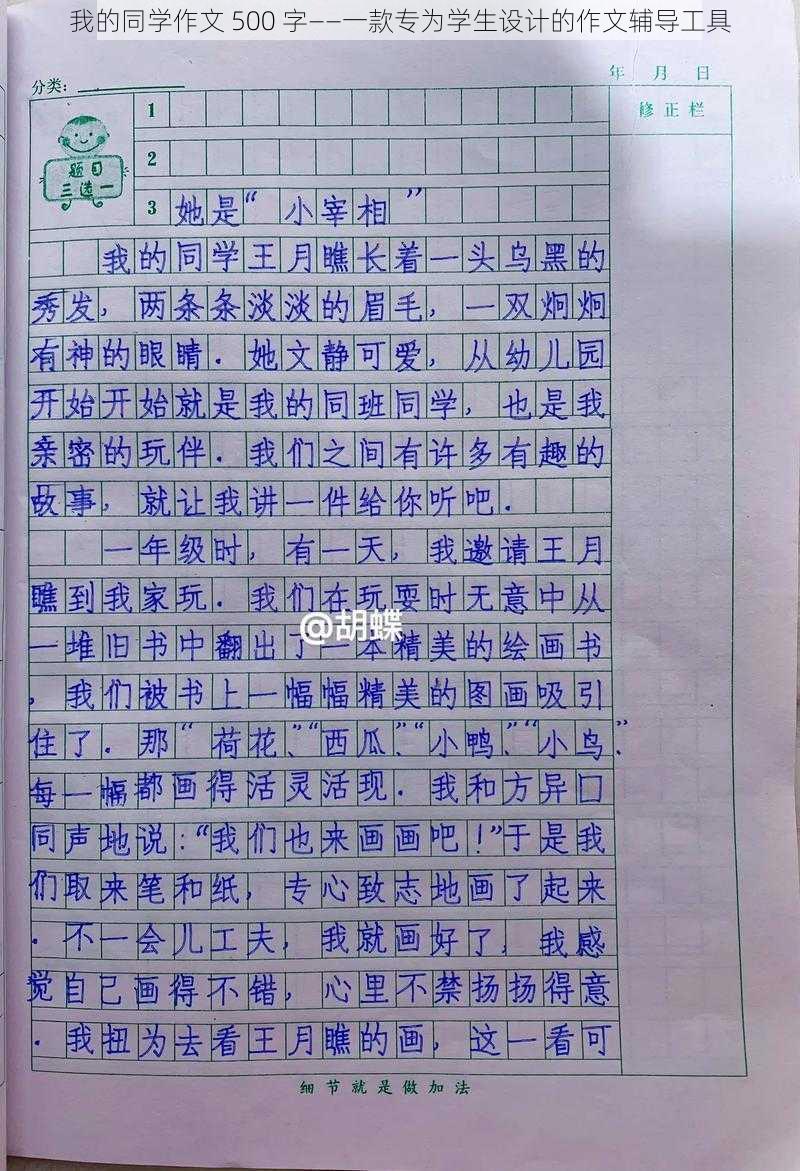 我的同学作文 500 字——一款专为学生设计的作文辅导工具
年 月 日
分类:
修正栏
题目
三选一
1
2
3 她是“小宰相”
我的同学王月瞧长着一头乌黑的
秀发，两条条淡淡的眉毛，一双炯炯
有神的眼睛．她文静可爱，从幼儿园
开始开始就是我的同班同学，也是我
亲密的玩伴．我们之间有许多有趣的
故事，就让我讲一件给你听吧．
一年级时，有一天，我邀请王月
瞧到我家玩．我们在玩耍时无意中从
一堆旧书中翻出了一本精美的绘画书
，我们被书上一幅幅精美的图画吸引
住了．那“荷花”、“西瓜”、“小鸭”、“小鸟”、
每一幅都画得活灵活现．我和方异口
同声地说：“我们也来画画吧！”于是我
们取来笔和纸，专心致志地画了起来
．不一会儿工夫，我就画好了，我感
觉自己画得不错，心里不禁扬扬得意
．我扭为去看王月瞧的画，这一看可
@胡蝶
细节就是做加法